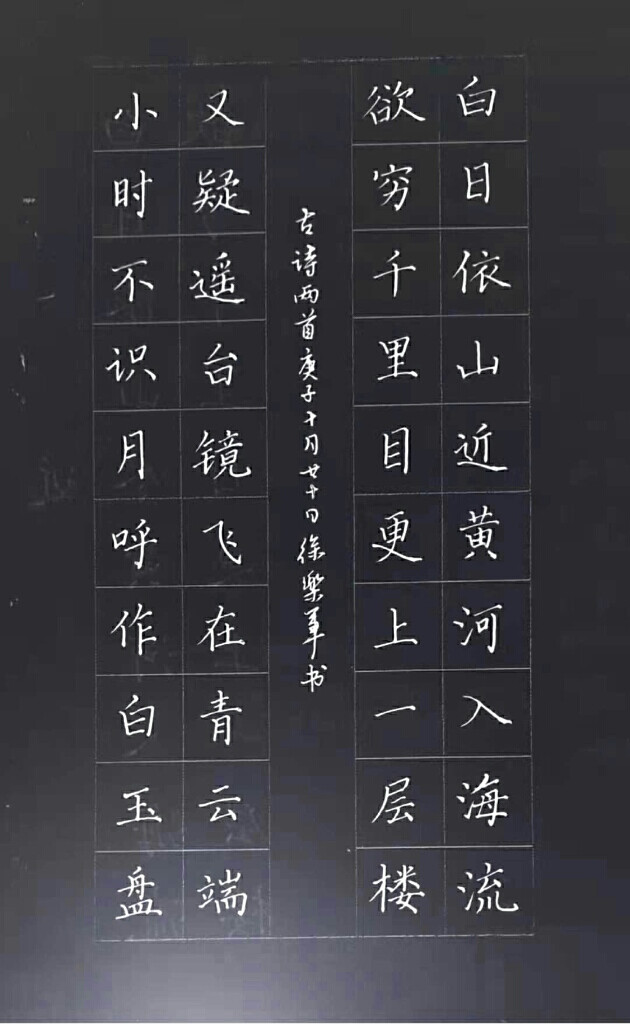 白日依山近黄河入海流
欲穷千里目更上一层楼
小时不识月呼作白玉盘
又疑遥台镜飞在青云端
古诗两首庚子十月廿十日徐樂军书